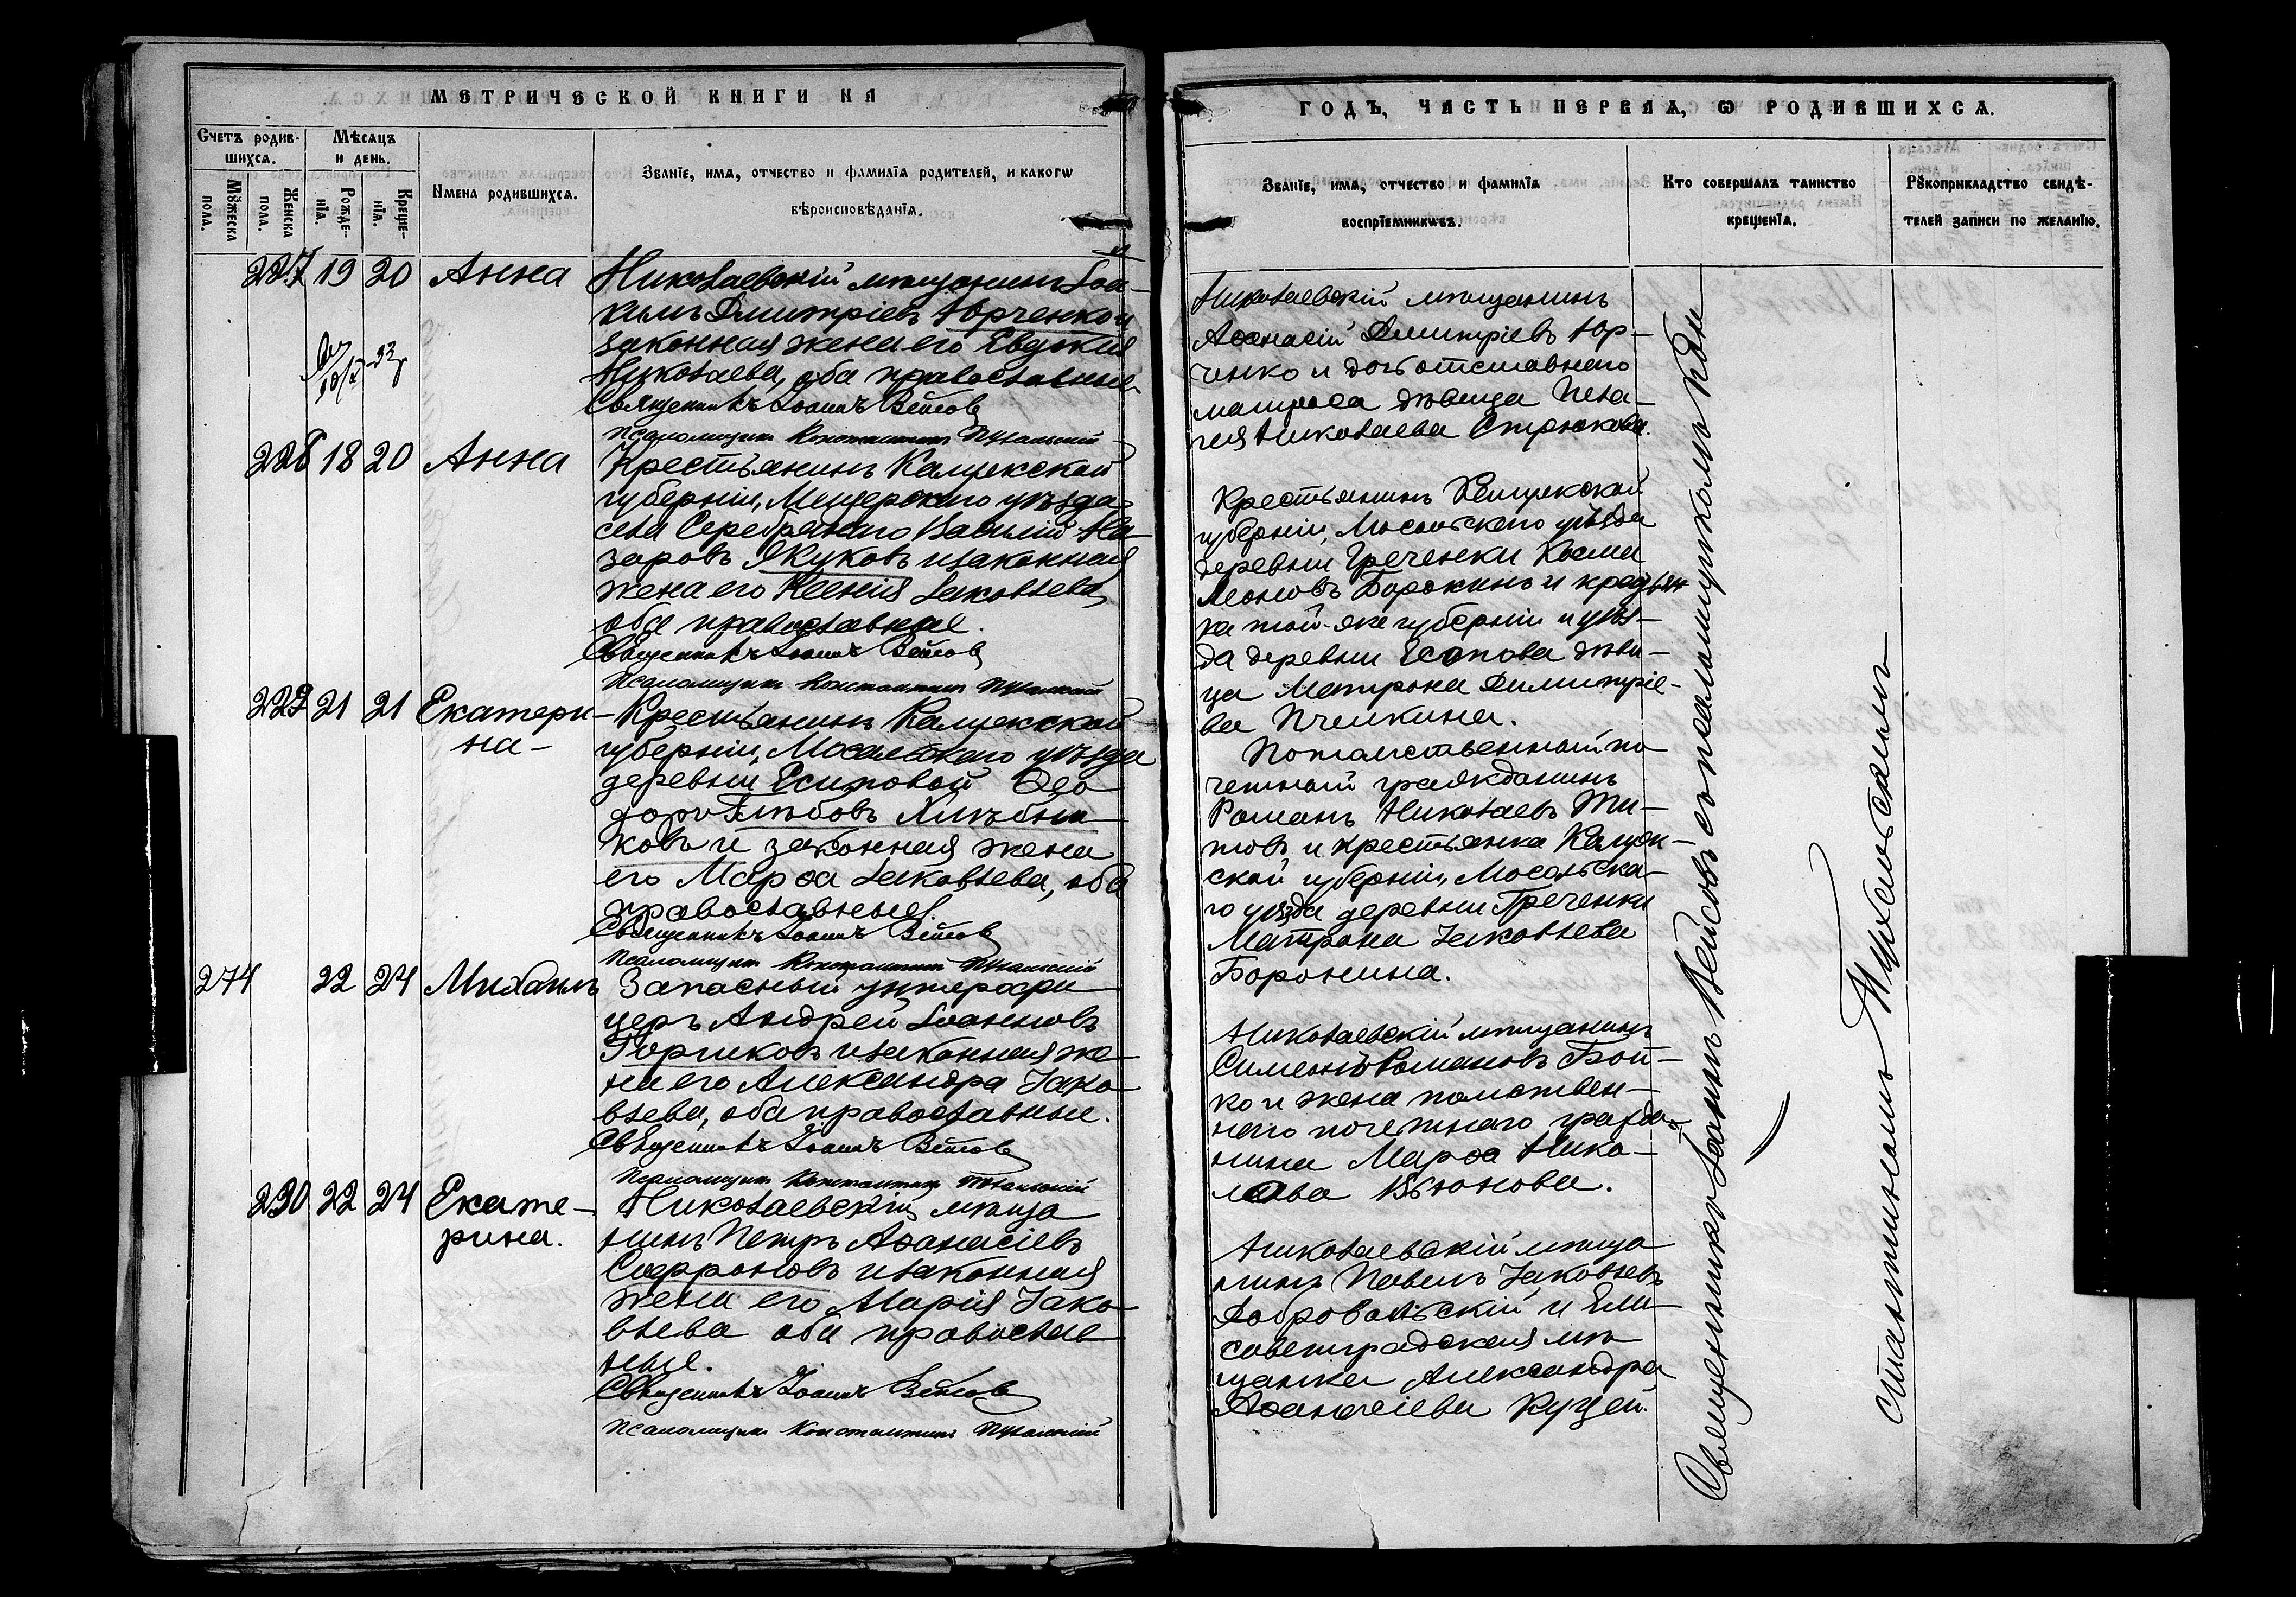 МЕТРИЧЕСКОЙ КНИГИ НА
Счетъ родив-
шихся.
Мѣсяцъ
и день.
Мꙋжеска
пола.
Женска
пола.
Рожде-
нїѧ.
Креще-
нїѧ.
Имена родившихсѧ.
Званїе, имѧ, отчество и фамилїѧ родителей, и какогѡ
вѣроисповѣданїѧ.
227 19 20 Анна
Николаевскій мѣщанинъ Іоа-
кимъ Димитріевъ Юрченко и
законная жена его Евдокія
Николаева, оба православные
Священникъ Іоаннъ
Псаломщикъ Константинъ
228 18 20 Анна
Крестьянинъ Калужской
губерніи, Мещерскаго уѣзда
села Серебрянаго Василій На-
заровъ Якуковъ и законная
жена его Ксенія Іаковлева,
оба православные.
Священникъ Іоаннъ
Псаломщикъ Константинъ
229 21 21 Екатери-
на-
Крестьянинъ Калужской
губерніи, Мосальскаго уѣзда
деревни Есиповой Ѳео
доръ Глѣбовъ Хлѣбни
ковъ и законная жена
его Марѳа Іаковлева, оба
православные.
Священникъ Іоаннъ
Псаломщикъ Константинъ
274 22 24 Михаилъ
Запасный унтерофи
церъ Андрей Іоанновъ
Горшковъ и законная же-
на его Александра Іако-
влева, оба православные.
Священникъ Іоаннъ
Псаломщикъ Константинъ
230 22 24 Екате-
рина.
Николаевскій мѣща
нинъ Петръ Аѳанасіевъ
Софроновъ и законная
жена его Марія Іако-
влева оба православ
ные.
Священникъ Іоаннъ
Псаломщикъ Константинъ
ГОДЪ, ЧАСТЬ ПЕРВАѦ, Ѡ РОДИВШИХСѦ.
Званїе, имѧ, отчество и фамилїѧ
воспрїемникѡвъ.
Кто совершалъ таинство
крещенїѧ.
Рꙋкоприкладство свидѣ-
телей записи по желанїю.
Николаевскій мѣщанинъ
Аѳанасій Димитріевъ Юр-
ченко и дочь отставнаго
матроса дѣвица Пела-
гея Николаева Стрюкова.
Крестьянинъ Калужской
губерніи, Мосальскаго уѣзда
деревни Греченки Косма
Леоновъ Боронинъ и крестьян
ка той-же губерніи и уѣз-
да деревни Есипова дѣви-
ца Матрона Димитріе-
ва Пчелкина.
Потомственный по
четный гражданинъ
Романъ Николаевъ Ти-
товъ и крестьянка Калуж-
ской губерніи, Мосальска-
го уѣзда деревни Греченки
Матрона Іаковлева
Боронина.
Николаевскій мѣщанинъ
Симеонъ Романовъ Бой-
ко и жена потомствен-
наго почетнаго гражда-
нина Марѳа Нико-
лаева Вьюнова.
Николаевскій мѣща
нинъ Павелъ Іаковлевъ
Добровольскій и Ели-
саветградская мѣ
щанка Александра
Аѳанасіева Куцей.
Священникъ Іоаннъ Вейсовъ съ псаломщикомъ Кон
стантиномъ